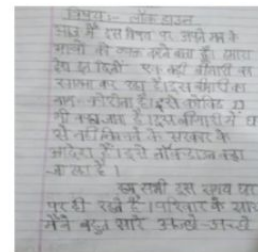 विषय:- लॉक डाउन
आज मैं इस विषय पर अपने मन के
भावों को व्यक्त करने वाला हूँ। हमारा
देश इन दिनों एक बड़ी बीमारी का
सामना कर रहा है। इस बीमारी का
नाम कोरोना है। इसे कोविड 19
भी कहा जाता है। इस बीमारी में घ
से नहीं निकलने के सरकार के
आदेश हैं। इसे लॉकडाउन कहा
जा रहा है।
हम सभी इस समय घर
पर ही रहते हैं। परिवार के साथ
मैंने बहुत सारे अच्छे-अच्छे